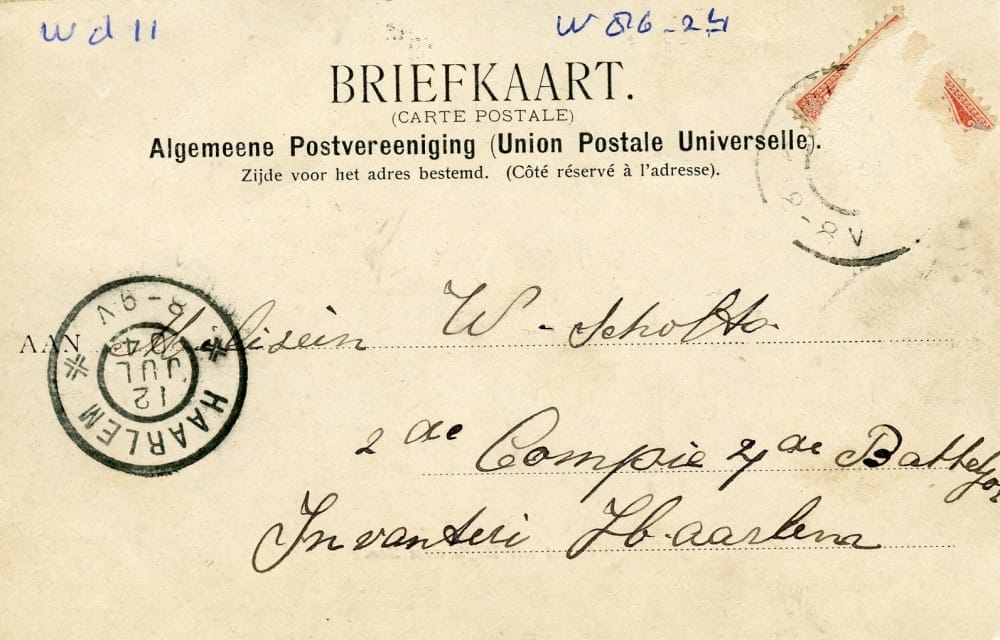 Wd 11
W 86-24
BRIEFKAART.
(CARTE POSTALE)
Algemeene Postvereeniging (Union Postale Universelle).
Zijde voor het adres bestemd. (Côté réservé à l'adresse).
8-9V
8-9V
04
JUL
12
HAARLEM
AAN Milisein W. Scholta
2de Compie de
Invanteri Haarlem